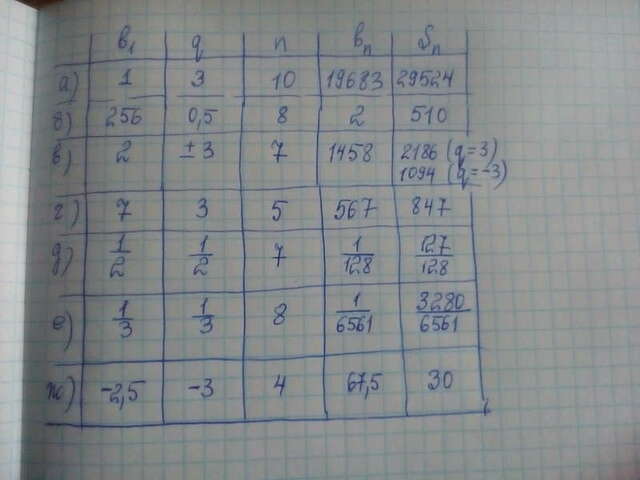 b₁ q n bₙ Sₙ
а) 1 3 10 19683 29524
б) 256 0,5 8 2 510
в) 2 ±3 7 1458 2186 (q=3)
1094 (q=-3)
г) 7 3 5 567 847
д) 1/2 1/2 7 1/128 127/128
е) 1/3 1/3 8 1/6561 3280/6561
ж) -2,5 -3 4 67,5 30